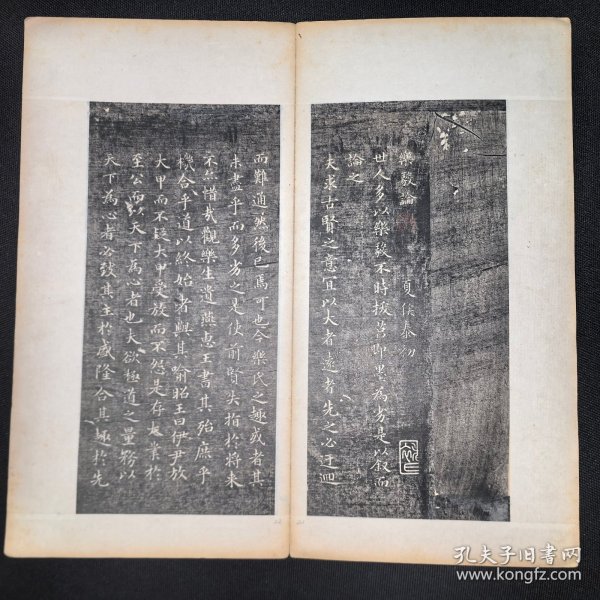 樂毅論
夏侯泰初
世人多以樂毅不時拔莒即墨為劣是以叙而
論之
夫求古賢之意宜以大者遠者先之必迂迴
而難通然後已焉可也今樂氏之趣或者其
未盡乎而多劣之是使前賢失指於將来
不亦惜哉觀樂生遺燕惠王書其殆庶乎
機合乎道以終始者與其喻昭王曰伊尹放
大甲而不疑大甲受放而不怨是存大業於
至公而以天下為心者也夫欲極道之量務以
天下為心者必致其主於盛隆合其趣於先
孔夫子旧书网
www.kongfz.com